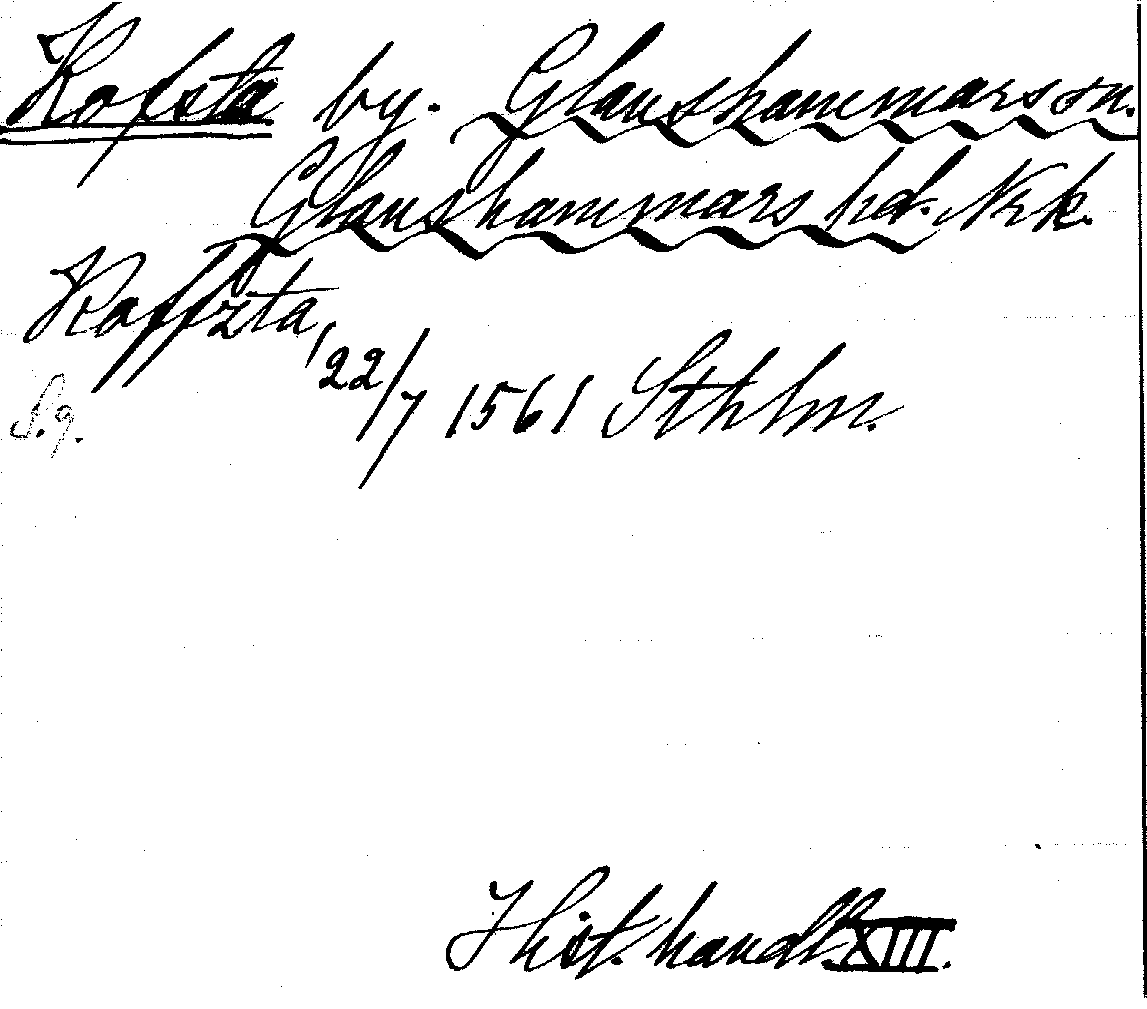 Rofsta by. Glanshammars sn.
Glanshammars hd. Nrk.
Roffzta, 22/7 1561 Sthlm.
S.g.
Hist. handl. XIII.